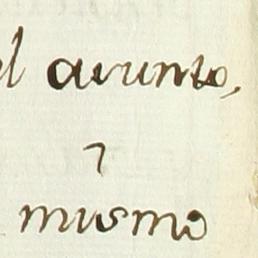 el asunto,
y
mismo